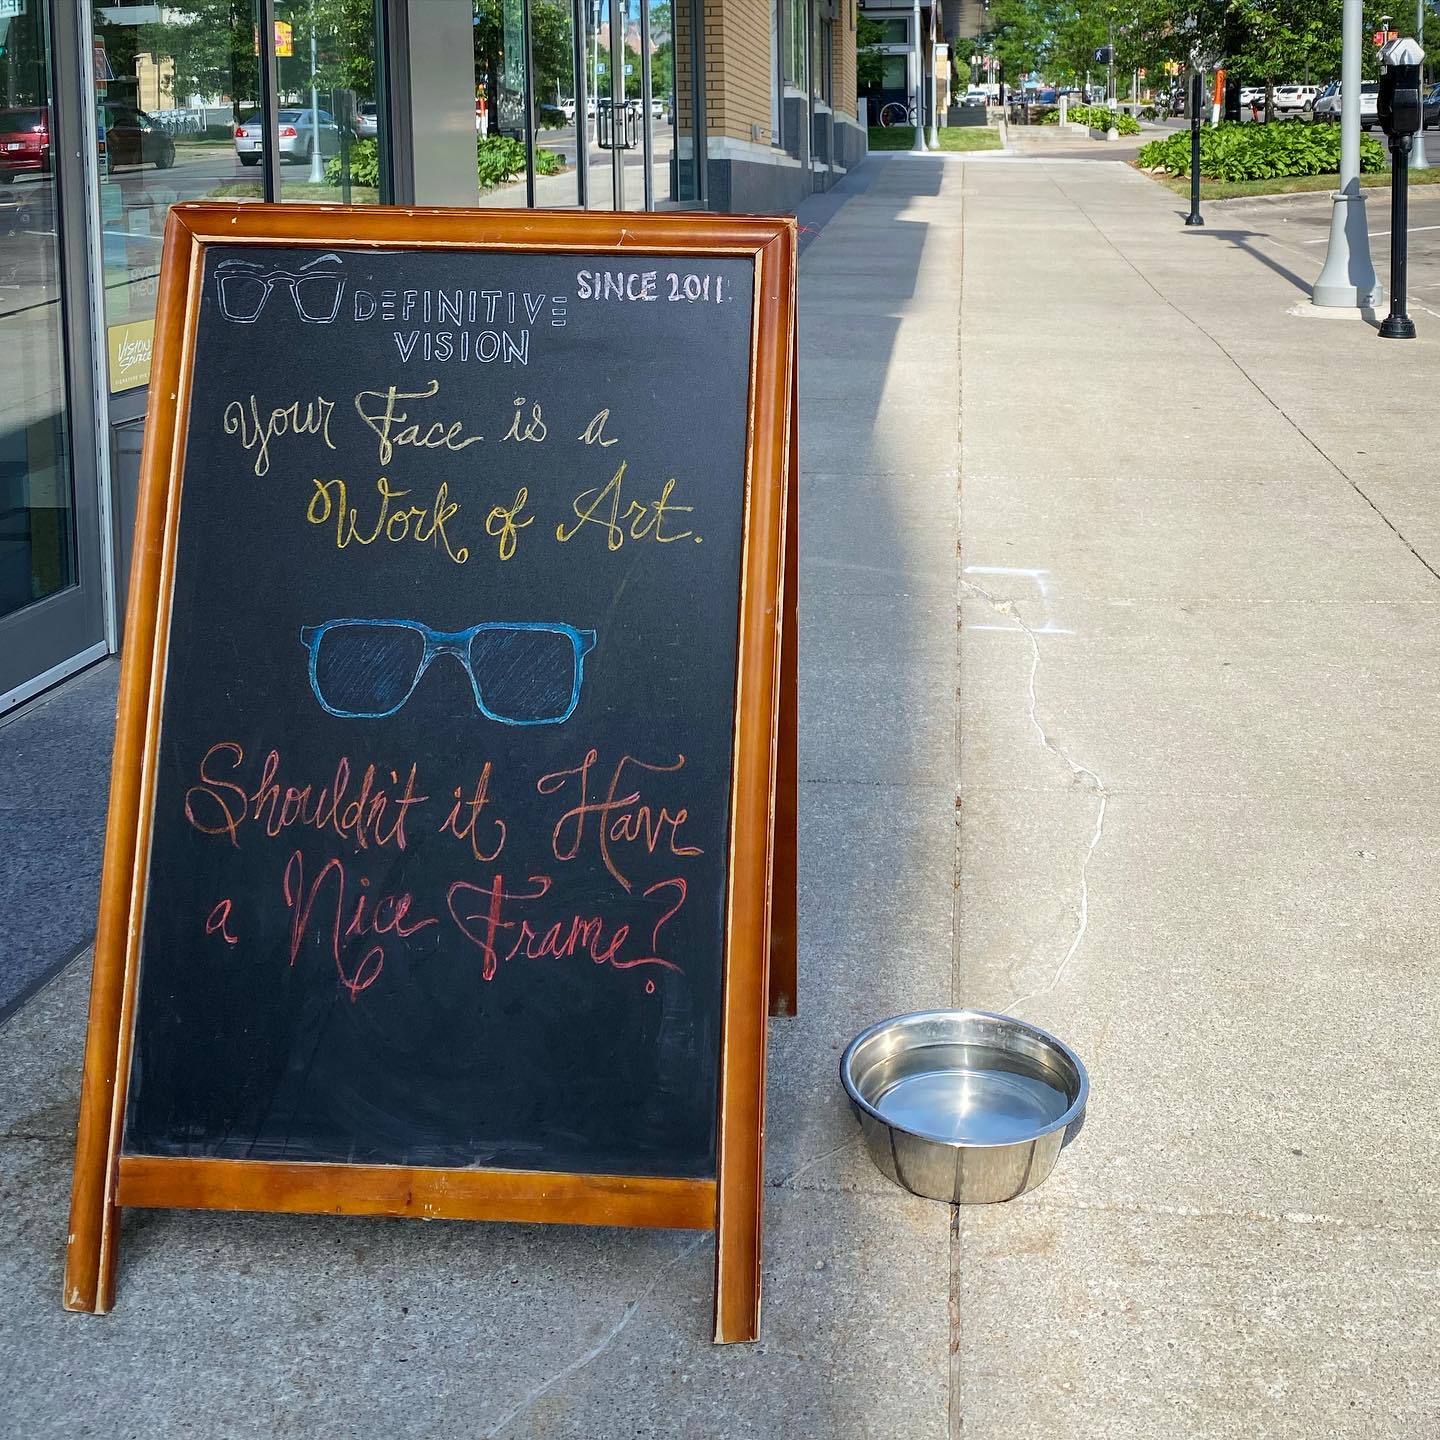 DEFINITIVE
VISION
SINCE 2011
Your Face is a
Work of Art.
Shouldn't it Have
a Nice Frame?
VISION
SOURCE